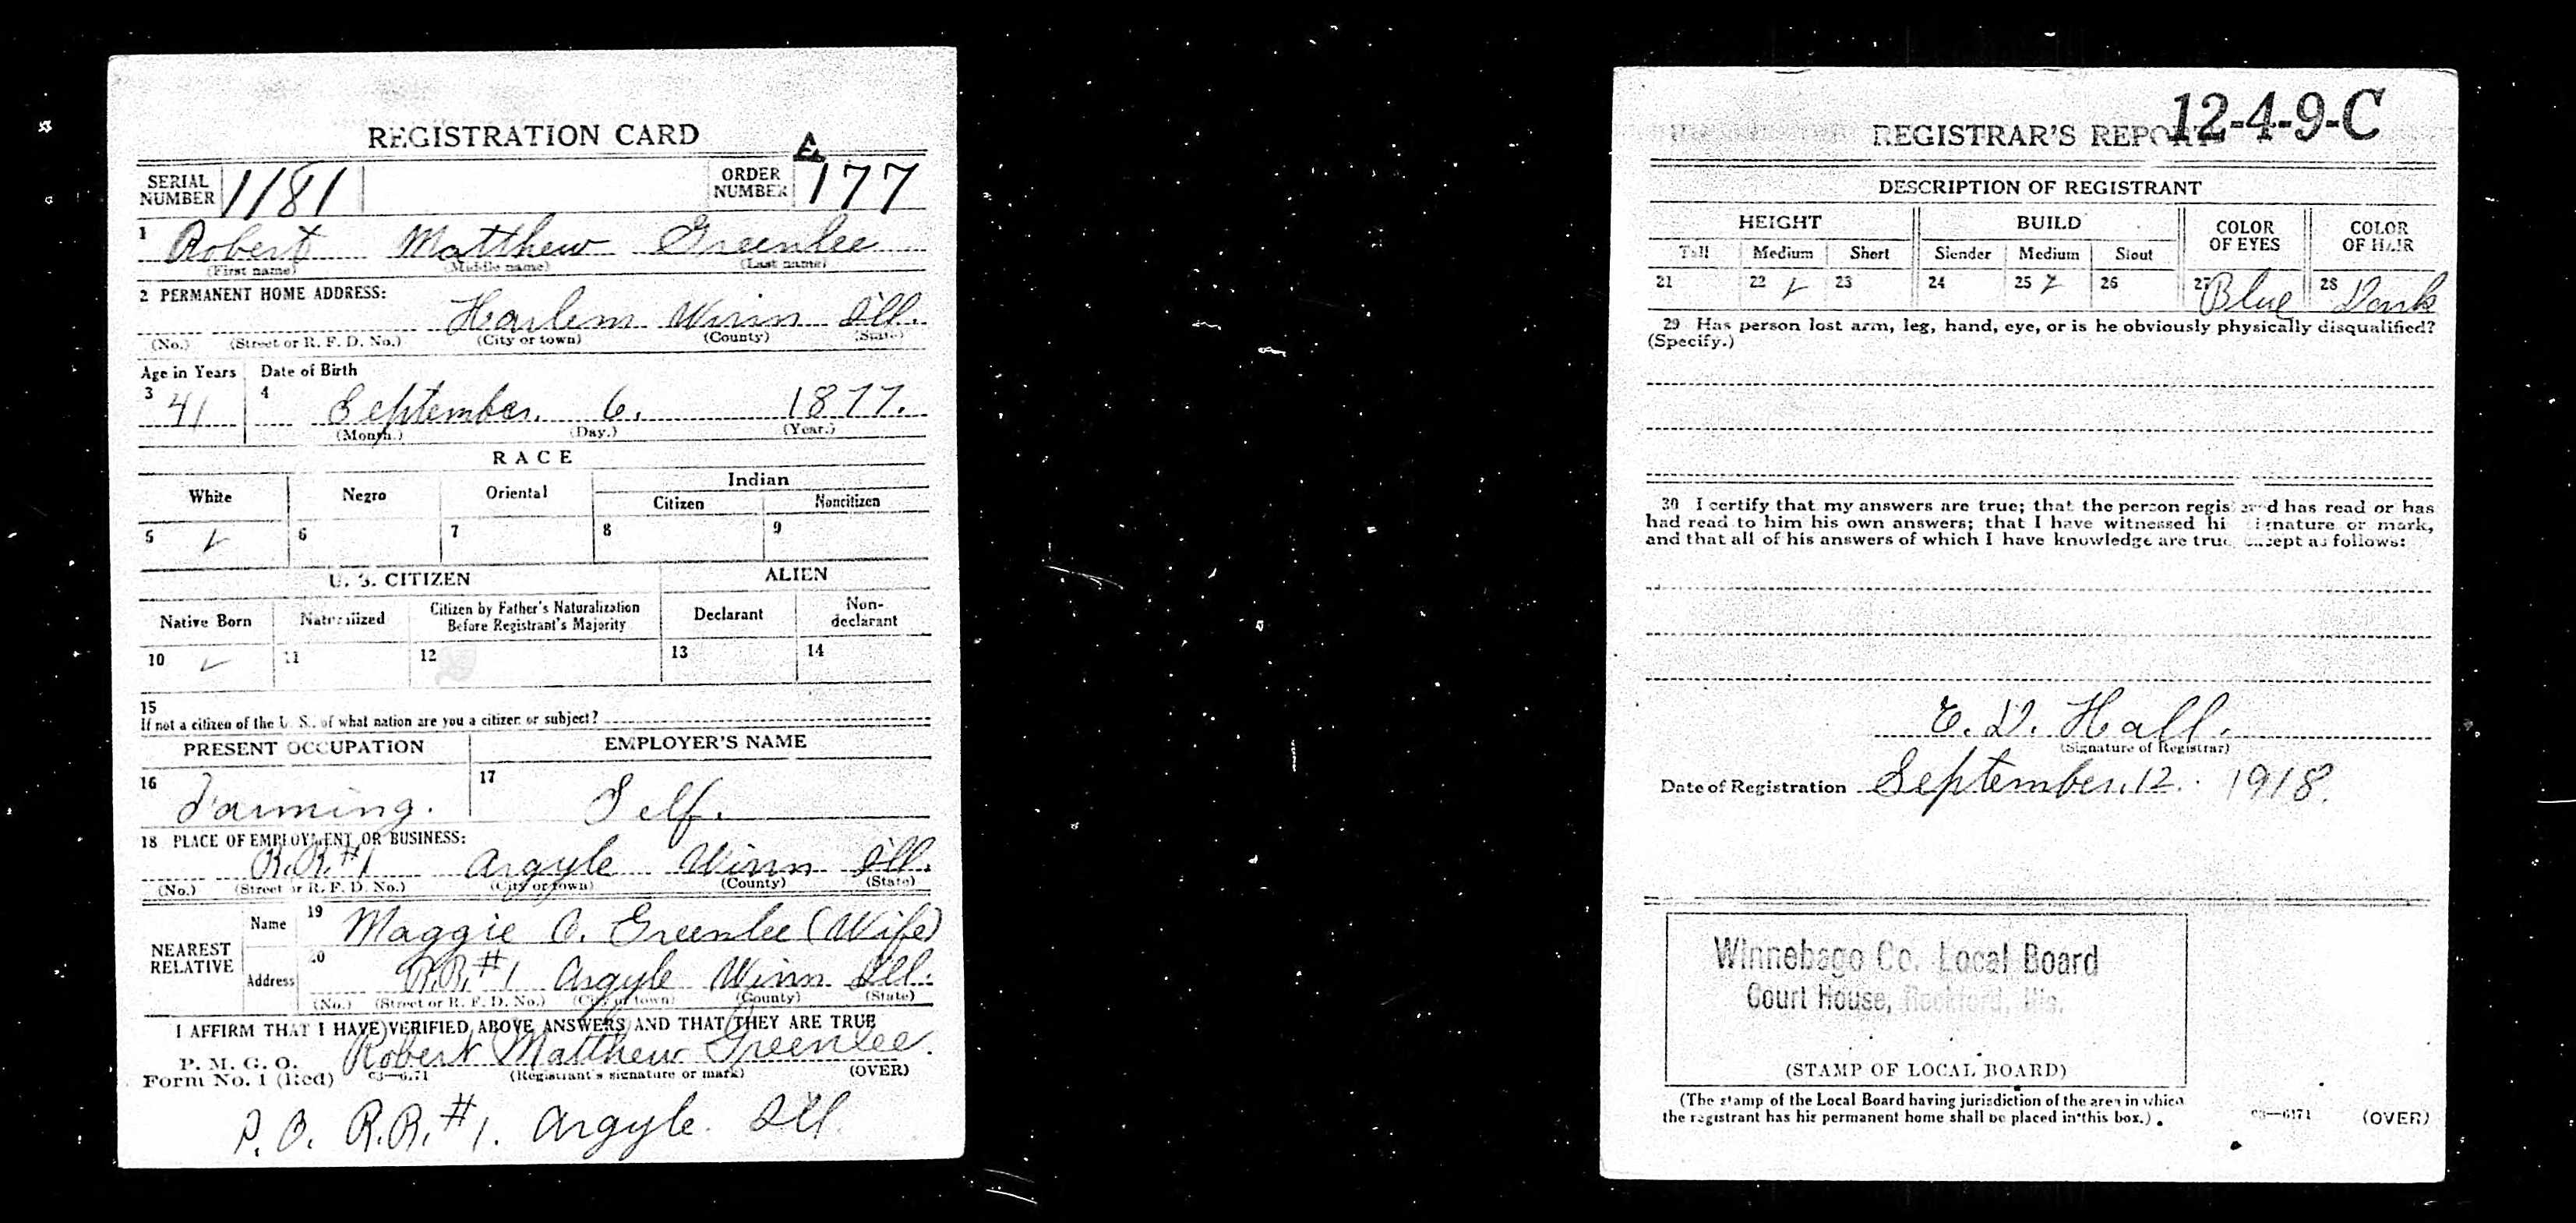 REGISTRATION CARD
SERIAL NUMBER 1181 ORDER NUMBER A 177
1 Robert Matthew Greenlee
(First name) (Middle name) (Last name)
2 PERMANENT HOME ADDRESS:
Harlem Winn Ill.
(No.) (Street or R. F. D. No.) (City or town) (County) (State)
Age in Years Date of Birth
3 41 4 September. 6. 1877.
(Month.) (Day.) (Year.)
RACE
White Negro Oriental Indian
Citizen Noncitizen
5 ✓ 6 7 8 9
U. S. CITIZEN ALIEN
Native Born Naturalized Citizen by Father's Naturalization Before Registrant's Majority Declarant Non-declarant
10 ✓ 11 12 13 14
15
If not a citizen of the U. S., of what nation are you a citizen or subject?
PRESENT OCCUPATION EMPLOYER'S NAME
16 Farming. 17 Self.
18 PLACE OF EMPLOYMENT OR BUSINESS:
R.R. #1 Argyle Winn Ill.
(No.) (Street or R. F. D. No.) (City or town) (County) (State)
NEAREST RELATIVE
Name 19 Maggie O. Greenlee (Wife)
Address 20 R.R. #1 Argyle Winn Ill.
(No.) (Street or R. F. D. No.) (City or town) (County) (State)
I AFFIRM THAT I HAVE VERIFIED ABOVE ANSWERS AND THAT THEY ARE TRUE
P. M. G. O.
Form No. 1 (Red) 03—6171 Robert Matthew Greenlee.
(Registrant's signature or mark) (OVER)
P.O. R.R. #1. Argyle. Ill.
REGISTRAR'S REPORT 12-4-9-C
DESCRIPTION OF REGISTRANT
HEIGHT BUILD COLOR OF EYES COLOR OF HAIR
Tall Medium Short Slender Medium Stout
21 22 ✓ 23 24 25 ✓ 26 27 Blue 28 Dark
29 Has person lost arm, leg, hand, eye, or is he obviously physically disqualified?
(Specify.)
30 I certify that my answers are true; that the person registered has read or has
had read to him his own answers; that I have witnessed his signature or mark,
and that all of his answers of which I have knowledge are true, except as follows:
E. V. Hall.
(Signature of Registrar)
Date of Registration September. 12. 1918.
Winnebago Co. Local Board
Court House, Rockford, Ills.
(STAMP OF LOCAL BOARD)
(The stamp of the Local Board having jurisdiction of the area in which
the registrant has his permanent home shall be placed in this box.)
03—6171 (OVER)